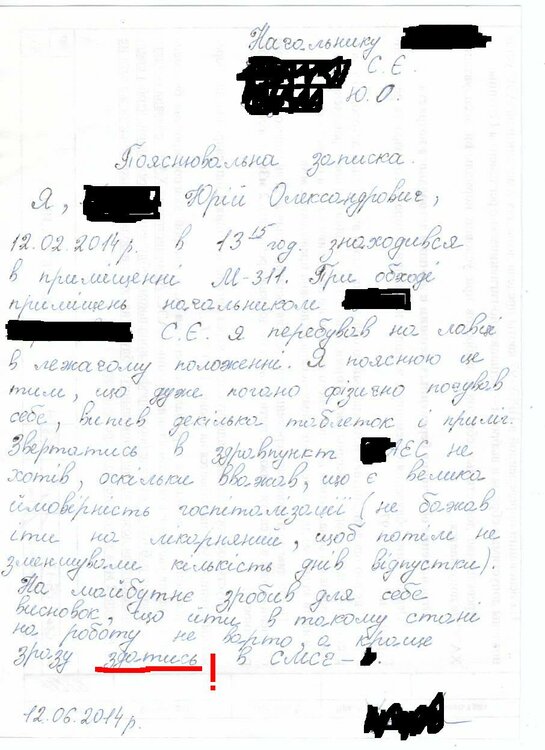 Начальнику
С.Є.
Ю.О.
Пояснювальна записка.
Я, Юрій Олександрович,
12.02.2014р. в 13 15 год. знаходився
в приміщенні М-311. При обході
приміщень начальником
С.Є. я перебував на лавці
в лежачому положенні. Я пояснюю це
тим, що дуже погано фізично почував
себе, випив декілька таблеток і приліг.
Звертатись в здравпункт АЕС не
хотів, оскільки вважав, що є велика
ймовірність госпіталізації (не бажав
іти на лікарняний, щоб потім не
зменшували кількість днів відпустки).
На майбутнє зробив для себе
висновок, що йти в такому стані
на роботу не варто, а краще
зразу здатись ! в СМСЧ-
12.06.2014р.